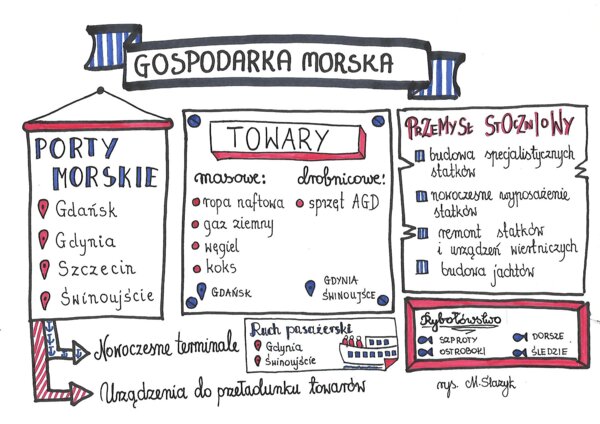 GOSPODARKA MORSKA
PORTY
MORSKIE
Gdańsk
Gdynia
Szczecin
Świnoujście
Nowoczesne terminale
Urządzenia do przeładunku towarów
TOWARY
masowe:
ropa naftowa
gaz ziemny
węgiel
koks
GDAŃSK
drobnicowe:
sprzęt AGD
GDYNIA
ŚWINOUJŚCE
Ruch pasażerski
Gdynia
Świnoujście
PRZEMYSŁ STOCZNIOWY
budowa specjalistycznych
statków
nowoczesne wyposażenie
statków
remont statków
i urządzeń wiertniczych
budowa jachtów
Rybołówstwo
SZPROTY
OSTROBOKI
DORSZE
ŚLEDZIE
rys. M. Stazyk